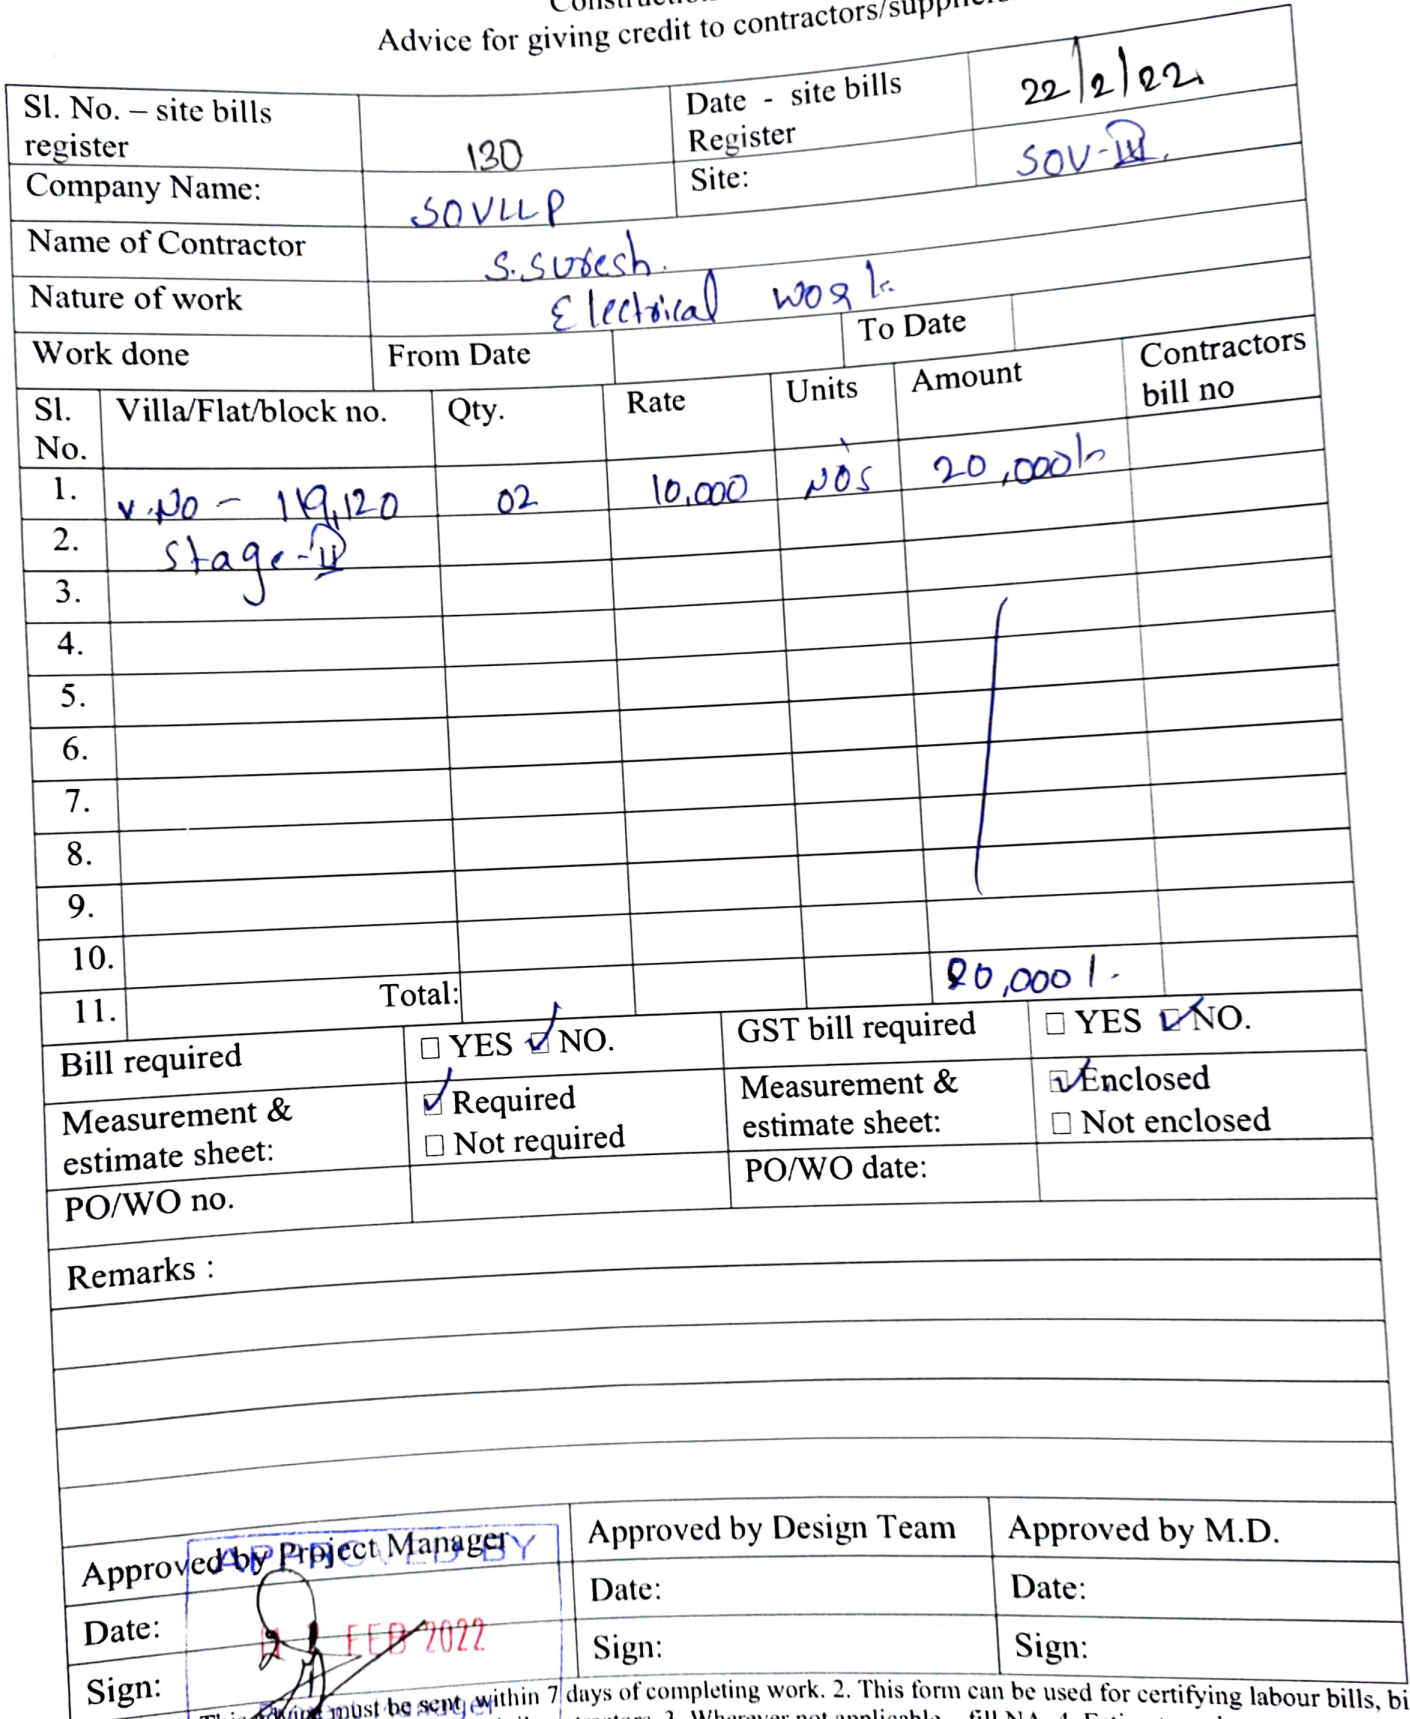 Advice for giving credit to contractors/suppliers
Sl. No. – site bills register 130 Date - site bills Register 22/2/22.
Company Name: SOVLLP Site: SOV-III.
Name of Contractor S.Suresh.
Nature of work Electrical work.
Work done From Date To Date
Sl. No. Villa/Flat/block no. Qty. Rate Units Amount Contractors bill no
1. V.No - 119,120 02 10,000 Nos 20,000/-
2. Stage-II
3.
4.
5.
6.
7.
8.
9.
10.
11. Total: 20,000/-
Bill required ☐ YES ☑ NO. GST bill required ☐ YES ☑ NO.
Measurement & estimate sheet: ☑ Required ☐ Not required Measurement & estimate sheet: ☑ Enclosed ☐ Not enclosed
PO/WO no. PO/WO date:
Remarks :
Approved by Project Manager Approved by Design Team Approved by M.D.
APPROVED BY
Date: FEB 2022 Date: Date:
Sign: Sign: Sign:
must be sent within 7 days of completing work. 2. This form can be used for certifying labour bills, bi